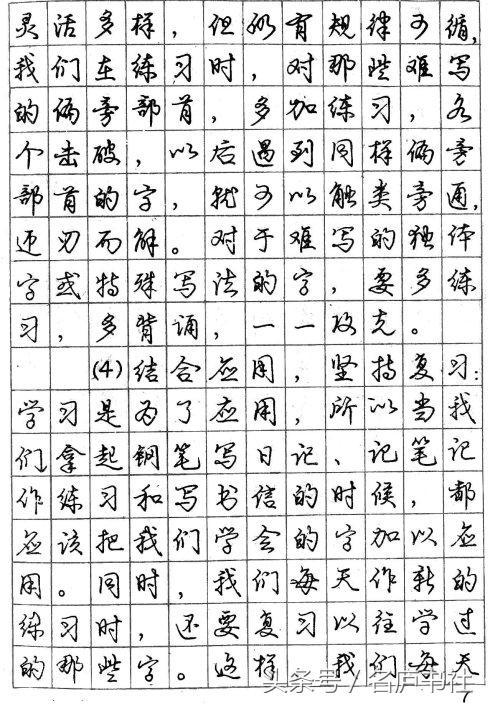 灵活多样，但仍有规律可循，
我们在练习时，对那些难写
的偏旁部首，多加练习，各
个击破，以后遇到同样偏旁
部首的字，就可以触类旁通，
迎刃而解。对于难写的独体
字或特殊写法的字，要多练
习，多背诵，一一攻克。
(4)结合应用，坚持复习：
学习是为了应用，所以当我
们拿起钢笔写日记、记笔记
作练习和写书信的时候，都
应该把我们学会的字加以应
用。同时，我们每天作新的
练习时，还要复习以往学过
的那些字。这样 我们每天
头条号／名庐书社
7